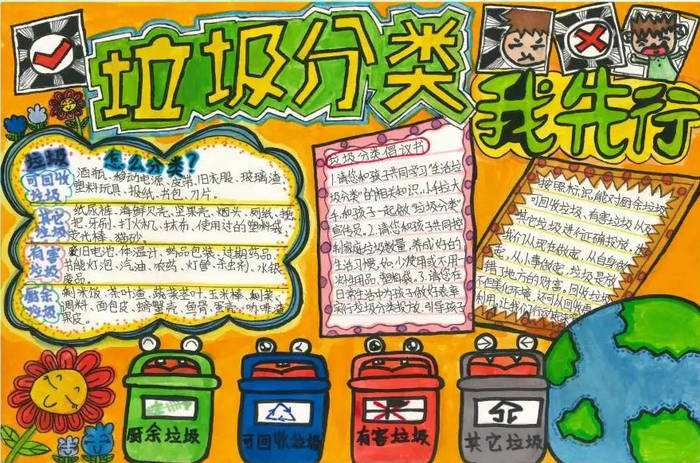 垃圾分类
我先行
垃圾怎么分类?
可回收
垃圾
酒瓶、移动电源、皮带、旧衣服、玻璃渣、
塑料玩具、报纸、书包、刀片。
其它
垃圾
纸尿裤、海鲜贝壳、坚果壳、烟头、刻纸、拖
把、牙刷、打火机、抹布、使用过的塑料袋、
猫砂。
有害
垃圾
废旧电池、体温计、药品包装、过期药品、
节能灯泡、汽油、农药、灯管、杀虫剂、水银
厨余
垃圾
剩米饭、茶叶渣、蔬菜茎叶、玉米棒、剩菜、
调料、面包皮、螃蟹壳、鱼骨、蛋壳、咖啡渣
果皮。
垃圾分类倡议书
1.请您和孩子共同学习“生活垃
圾分类”的相关知识,小手拉大
手,和孩子一起做“垃圾分类”
宣传员。2.请您和孩子共同控
制家庭垃圾数量,养成好的
生活习惯,如少使用或不用一
次性用品、塑料袋。3.请您在
日常生活中为孩子做好表率
实行垃圾分类投放,引导孩子
按照标识,能对厨余垃圾
可回收垃圾、有害垃圾以及
其它垃圾进行正确投放,
我们从现在做起,从自身做
起,从小事做起,垃圾是放
错了地方的财富,回收垃圾
厨余垃圾
可回收垃圾
有害垃圾
其它垃圾